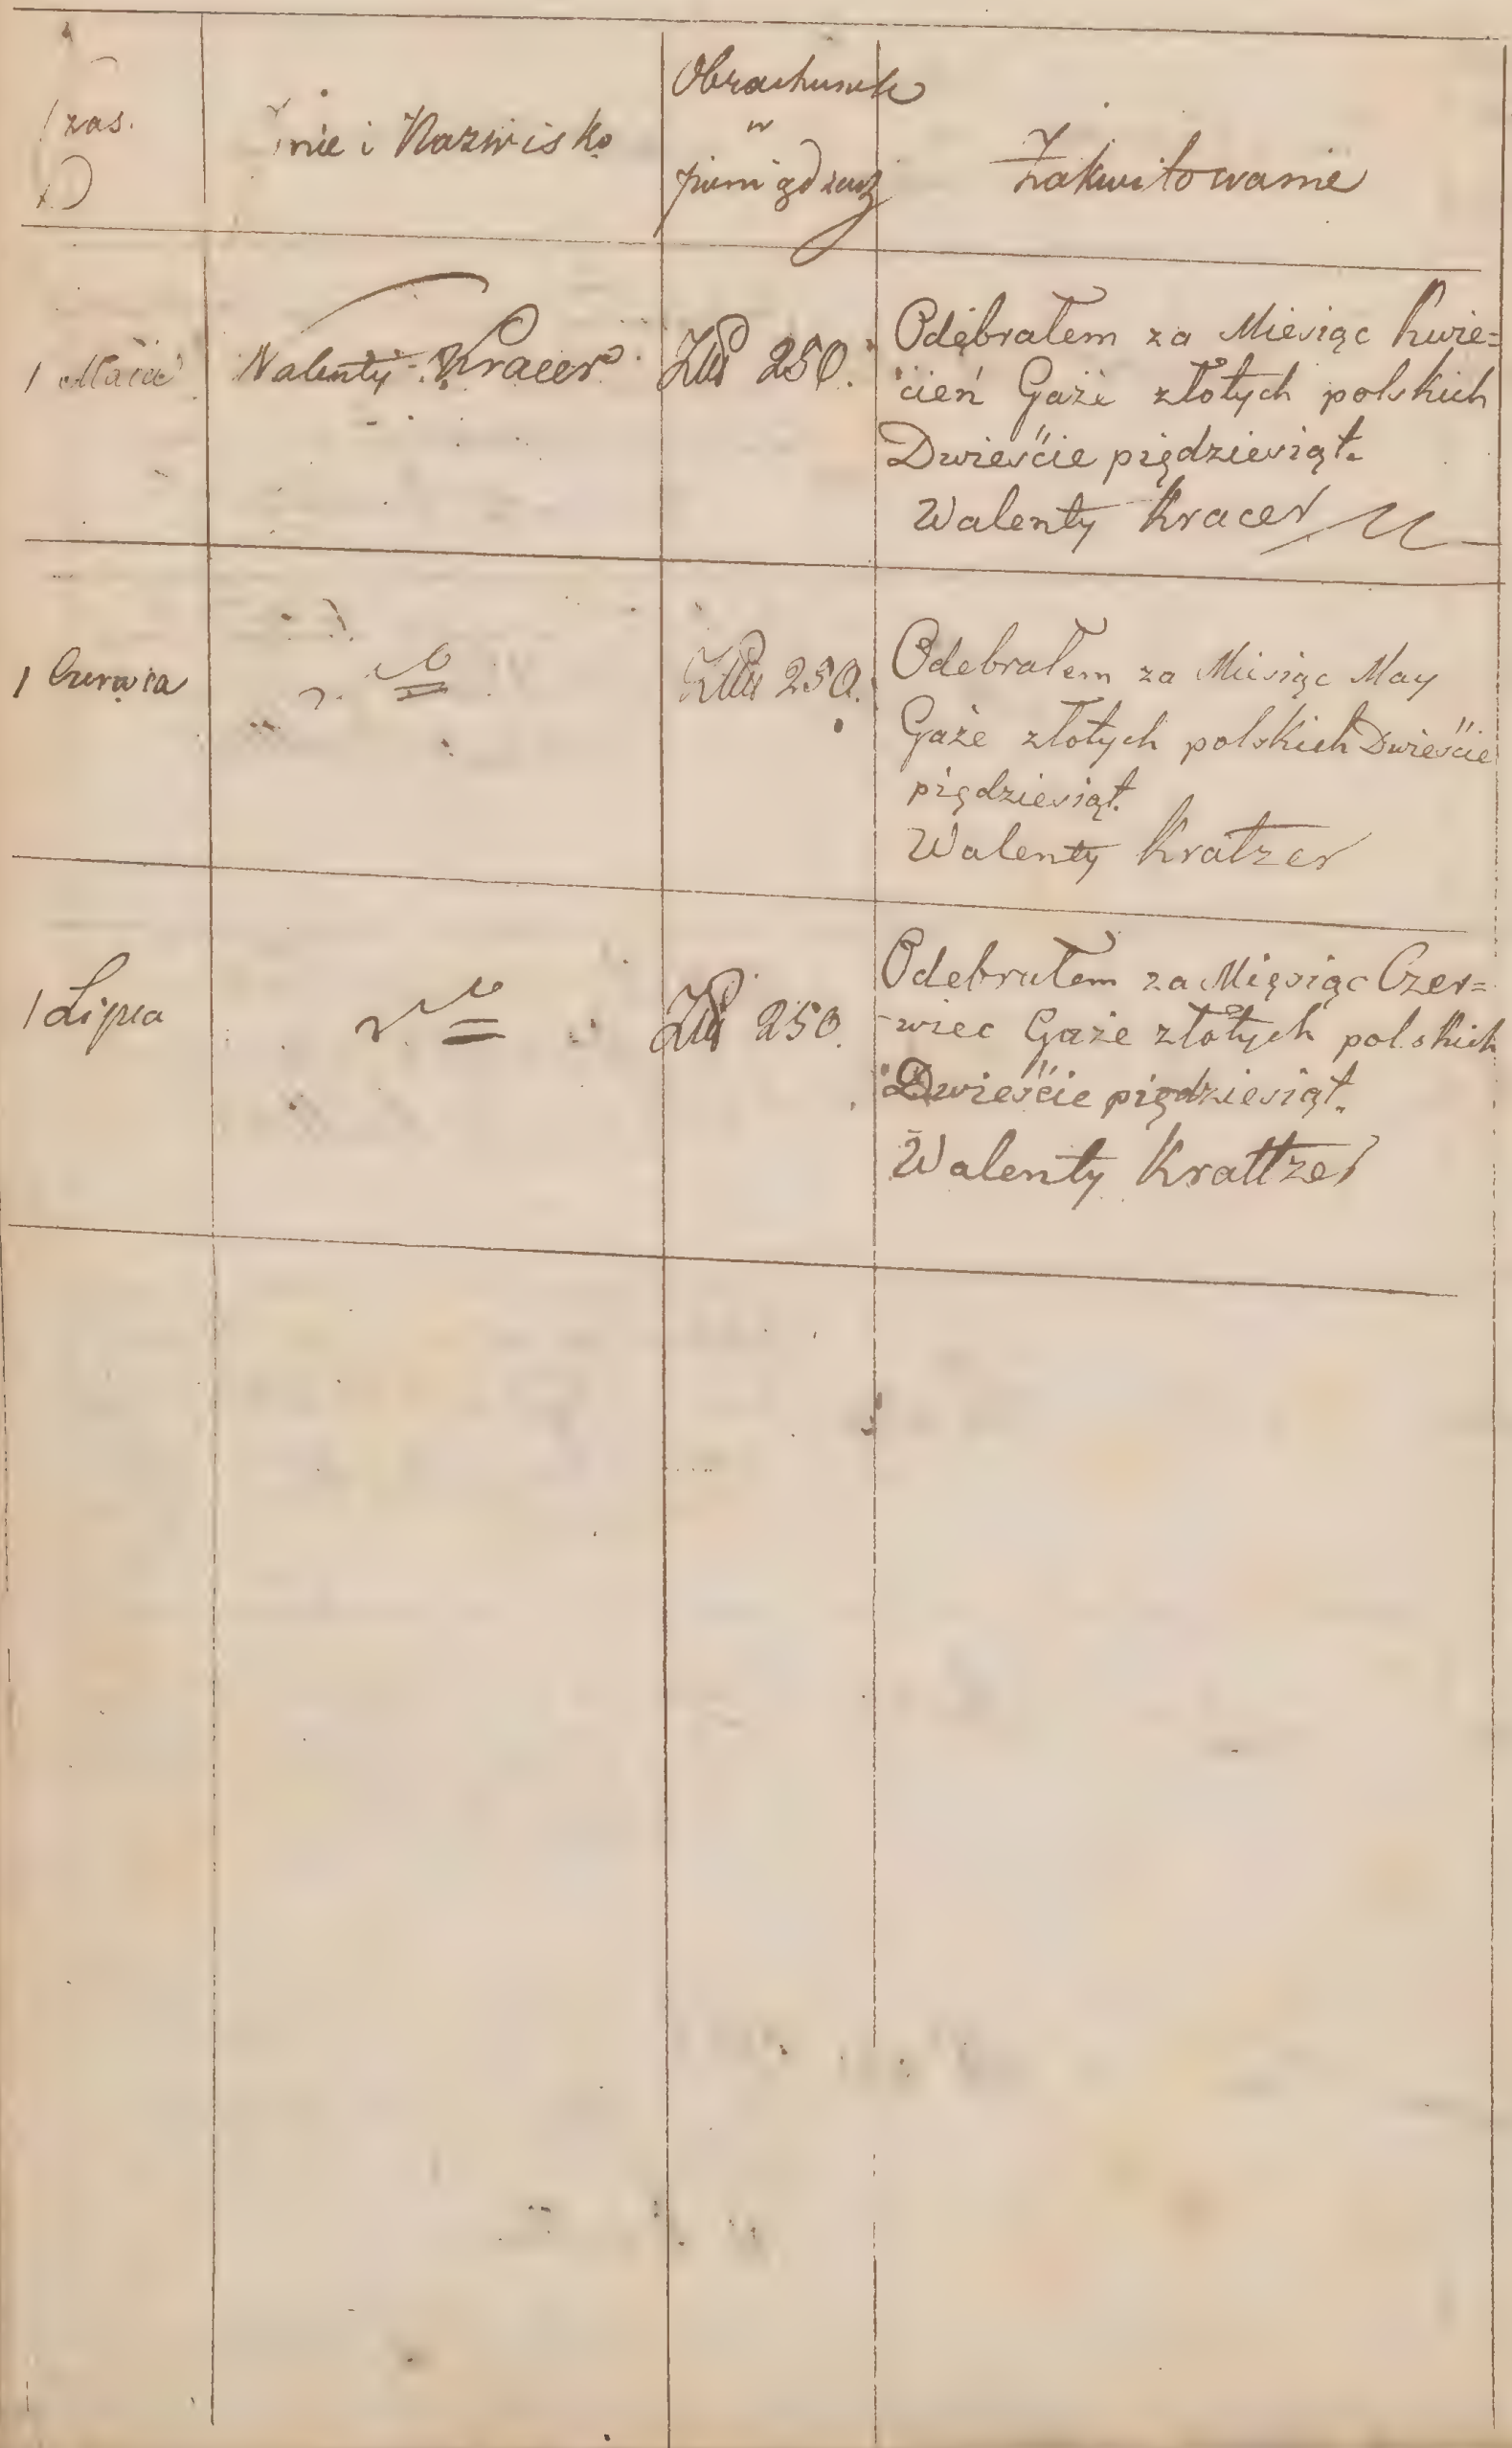 Czas.
Imie i Nazwisko
Obrachunek
w
pieniędzach
Zakwitowanie
1 Maja
Walenty Kracer
Złp 250.
Odebrałem za Miesiąc Kwie=
cień Gażę złotych polskich
Dwieście piędziesiąt.
Walenty Kracer
1 Czerwca
Złp 250.
Odebrałem za Miesiąc May
Gaże złotych polskich Dwieście
piędziesiąt.
Walenty Kratzer
1 Lipca
Złp 250.
Odebrałem za Miesiąc Czer=
-wiec Gaże złotych polskich
Dwieście piędziesiąt.
Walenty Krattzer